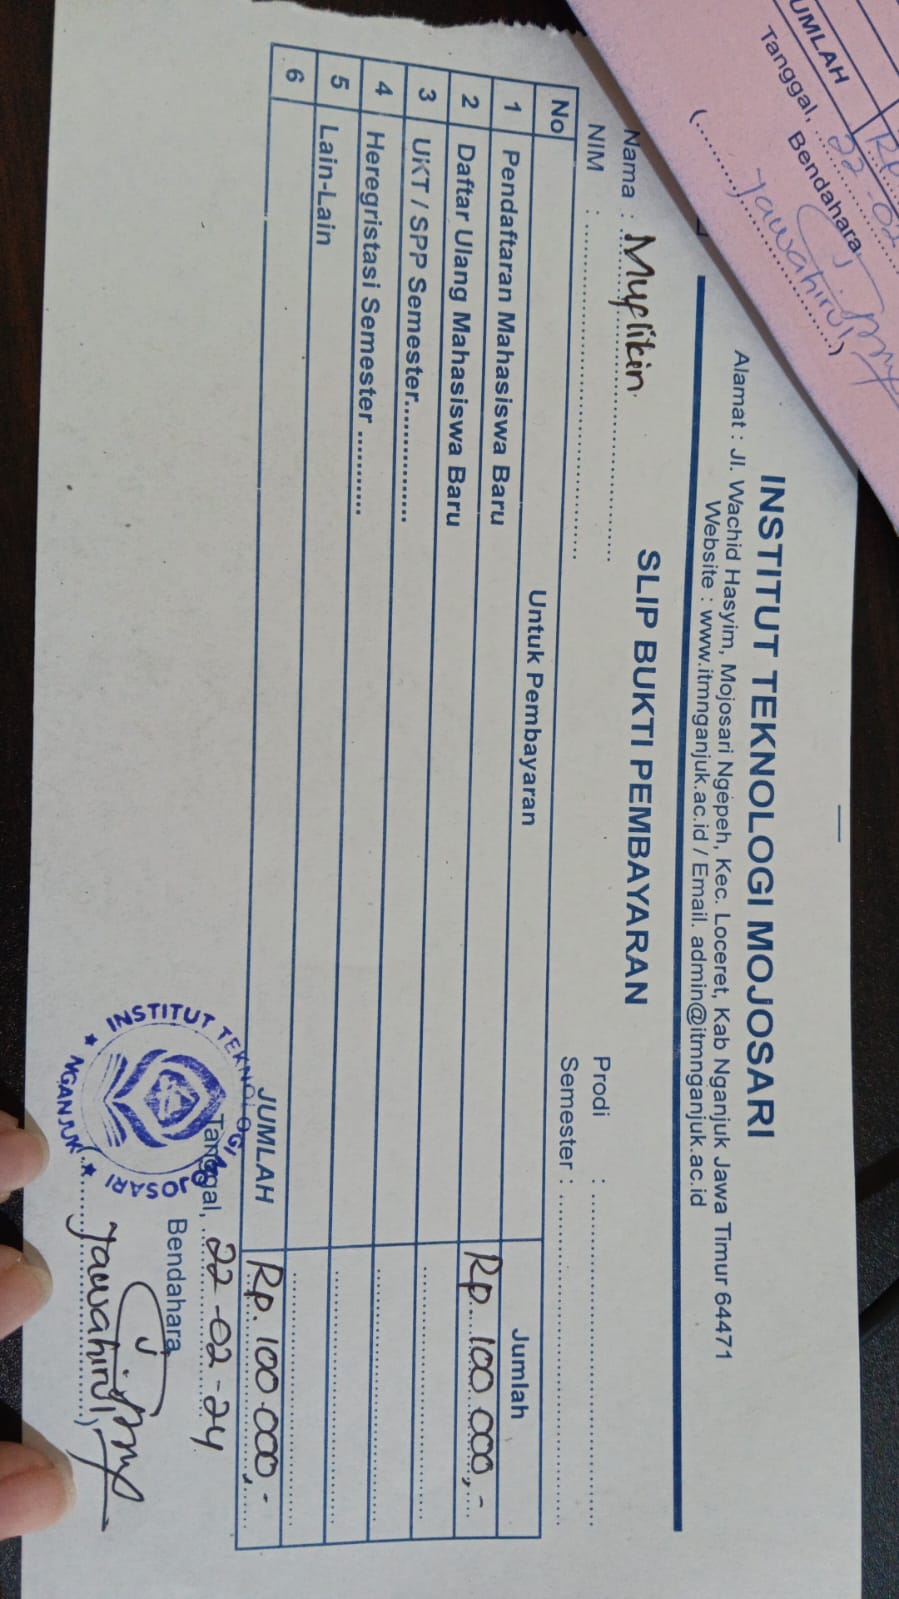 INSTITUT TEKNOLOGI MOJOSARI
Alamat : Jl. Wachid Hasyim, Mojosari Ngepeh, Kec. Loceret, Kab Nganjuk Jawa Timur 64471
Website : www.itmnganjuk.ac.id / Email. admin@itmnganjuk.ac.id
SLIP BUKTI PEMBAYARAN
Nama : Muflikin Prodi :
NIM : Semester :
No Untuk Pembayaran Jumlah
1 Pendaftaran Mahasiswa Baru Rp. 100.000,-
2 Daftar Ulang Mahasiswa Baru
3 UKT / SPP Semester..............
4 Heregristasi Semester ...........
5 Lain-Lain
6
JUMLAH Rp. 100.000,-
Tanggal, 22-02-24
Bendahara
(Jawahirul,)
INSTITUT TEKNOLOGI MOJOSARI
NGANJUK
UMLAH Rp
Tanggal, 22-02
Bendahara
(Jawahirul,)